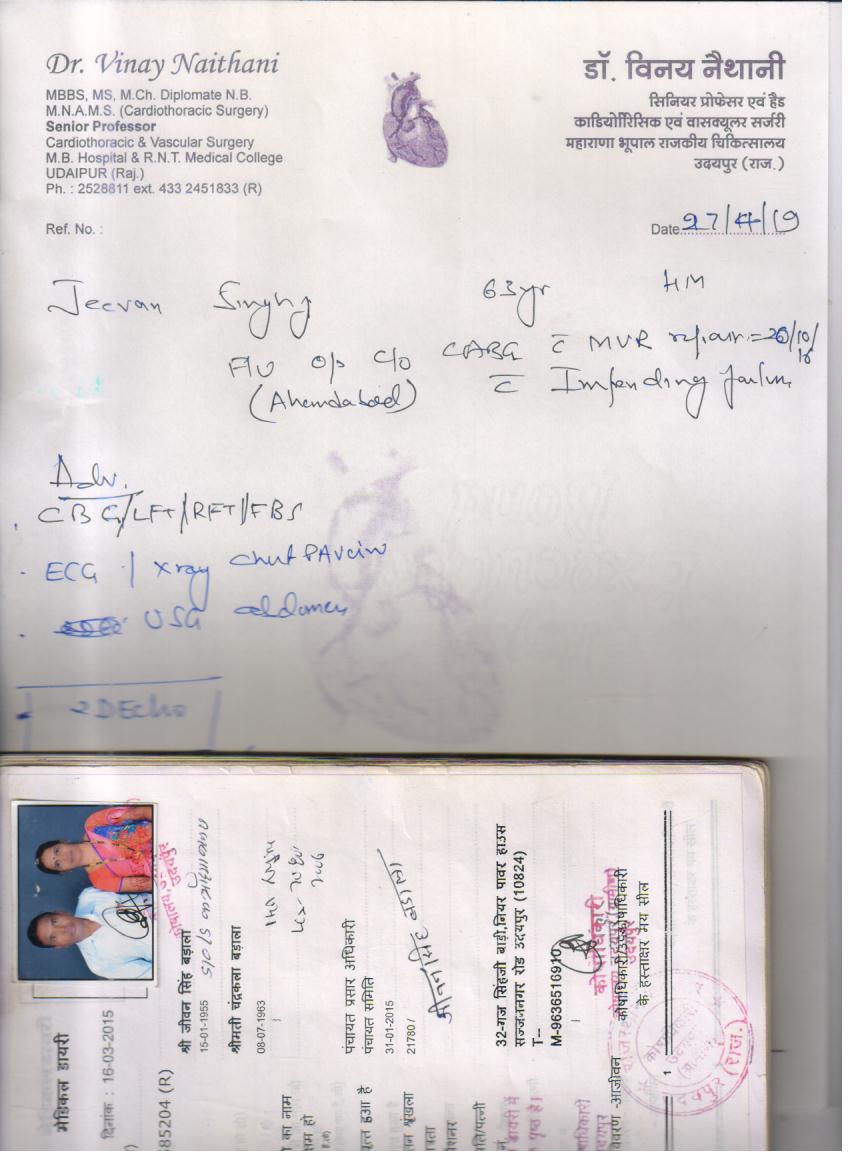 Dr. Vinay Naithani
MBBS, MS, M.Ch. Diplomate N.B.
M.N.A.M.S. (Cardiothoracic Surgery)
Senior Professor
Cardiothoracic & Vascular Surgery
M.B. Hospital & R.N.T. Medical College
UDAIPUR (Raj.)
Ph. : 2528811 ext. 433 2451833 (R)
डॉ. विनय नैथानी
सिनियर प्रोफेसर एवं हैड
कार्डियोरिसिक एवं वासक्यूलर सर्जरी
महाराणा भूपाल राजकीय चिकित्सालय
उदयपुर (राज.)
Ref. No. :
Date 27/4/19
Jeevan Singh 63yr
F/U O/P C/O CABG c̄ MVR repair
(Ahemdabad) c̄ Impending failure
Adv.
CBG/LFT/RFT/FBS
ECG / Xray chest PA view
USG abdomen
2DEcho
मेडिकल डायरी
दिनांक : 16-03-2015
85204 (R)
श्री जीवन सिंह बड़ाला
15-01-1955
श्रीमती चंद्रकला बड़ाला
08-07-1963
का नाम
पंचायत प्रसार अधिकारी
पंचायत समिति
31-01-2015
21780 /
जीवनसिंह बड़ाला
32-गज सिंहजी बाड़ी,नियर पावर हाउस
सज्जननगर रोड उदयपुर (10824)
T--
M-9636516910
कोषाधिकारी
कोषाधिकारी/उपकोषाधिकारी
के हस्ताक्षर मय सील
आजीवन
1